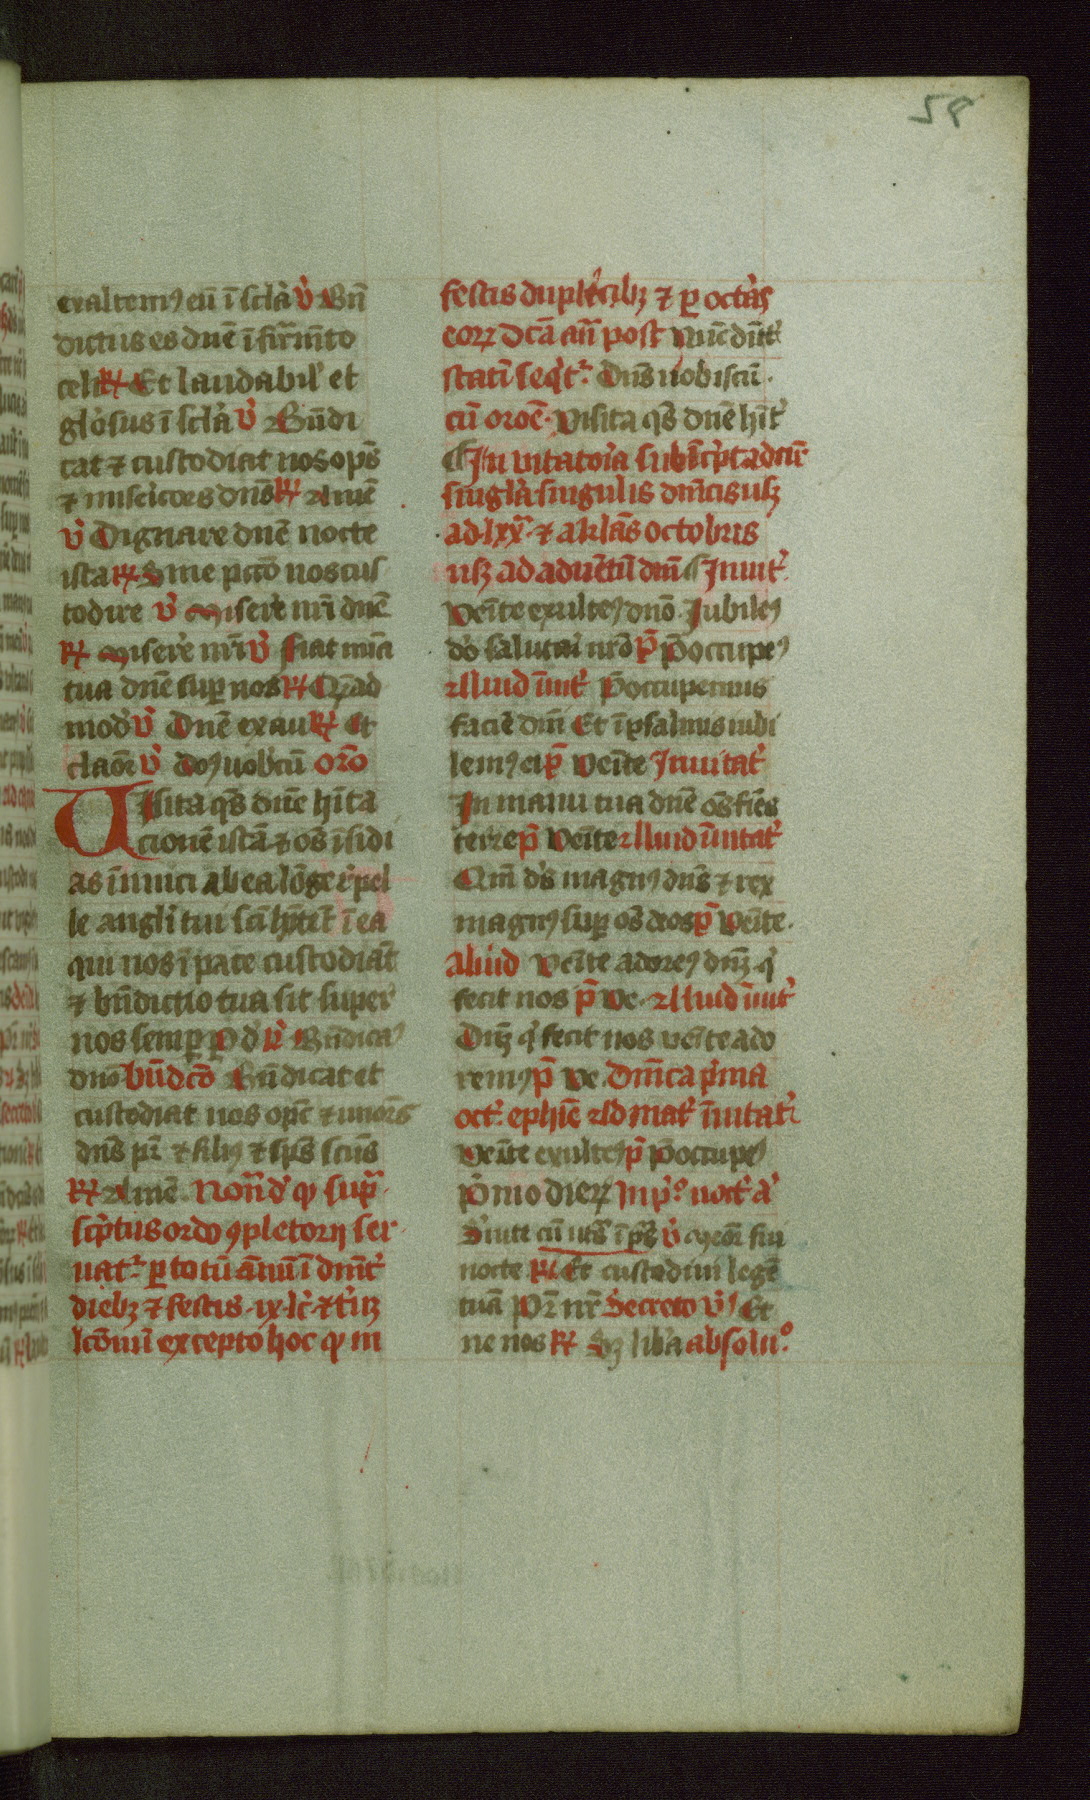 58
exaltem⁹ eū ī sclā ℣ Bn̄
dictus es dnē ī firmāto
celi ℟ Et laudabil' et
gl'osus ī sclā ℣ Bn̄di
cat ⁊ custodiat nos op̄s
⁊ misericors dn̄s ℟ Amē
℣ Dignare dnē nocte
ista ℟ Sine pctō nos cus
todire ℣ Misere nr̄i dnē
℟ Misere nr̄i ℣ fiat mīa
tua dnē sup nos ℟ Qēad
mod' ℣ Dnē exau ℟ Et
claōr ℣ Dn̄s uobcū orō
Visita qs̄ dnē hīta
tionē istā ⁊ oēs īsidi
as īimici ab ea lōge r̄pel
le angli tui scī hītēt ī ea
qui nos ī pace custodiāt
⁊ bn̄dictio tua sit super
nos semp P d' ℣ Bn̄dica⁹
dnō bn̄dcō Bn̄dicat et
custodiat nos op̄s ⁊ m̄ors
dn̄s pr̄ ⁊ fili⁹ ⁊ sp̄s scūs
℟ Amē. Notād' q sup̄
sc̄ptus ordo ꝯpletorij ser
uat' p totū ānum ī dnīcis
dieb; ⁊ festis . ix . lc̄ ⁊ triū
lc̄onū excepto hoc q in
festis duplicib; ⁊ p octās
eor̄ dcā an̄ post Nūc dīt'
statī seqt'. Dn̄s uobiscū.
cū oroē. Visita qs̄ dnē hīt'
Inuitatoria subsc̄pta dcūt'
singl'a singulis dn̄icis usq;
ad . lxx̄. ⁊ a klās octobris
usq; ad aduētū dn̄i Inuit'.
Venīte exultem⁹ dnō. Jubilem⁹
dō salutari nr̄o p̄ P̄occupem⁹
Aliud īuit' P̄occupemus
faciē dn̄i Et ī psalmis iubi
lem⁹ ei p̄ Venīte Inuitat'
In manu tua dnē oēs fines
terre p̄ Venīte Aliud īuitat'
Qm̄ d's magn⁹ dn̄s ⁊ rex
magn⁹ sup oēs deos p̄ Venīte.
aliud Venīte adorem⁹ dn̄m q'
fecit nos p̄ Ve. Aliud īuit'
Dn̄m q' fecit nos uenite ado
rem⁹ p̄ Ve. Dn̄ica p'ma
oct'. ephīe Ad mat' īuitat'.
Venīte exultem⁹ p̄ P̄occupem⁹
P̄mo dier̄ In p'. noct' a'
Seruite ℣ Meōr fui
nocte ℟ Et custodiui legē
tuā Pr̄ nr̄ Secreto ℣ Et
ne nos ℟ S; lib'a absolu°.